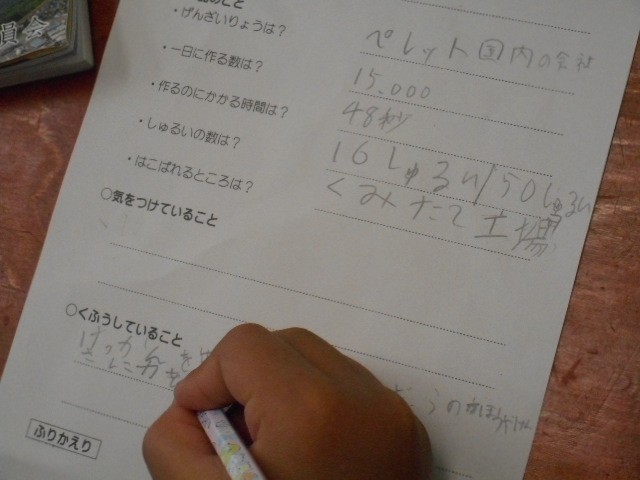 員会
のこと
・げんざいりょうは？ ペレット国内の会社
・一日に作る数は？ 15.000
・作るのにかかる時間は？ 48秒
・しゅるいの数は？ 16しゅるい/50しゅるい
・はこばれるところは？ くみたて工場
○気をつけていること
○くふうしていること
ふりかえり